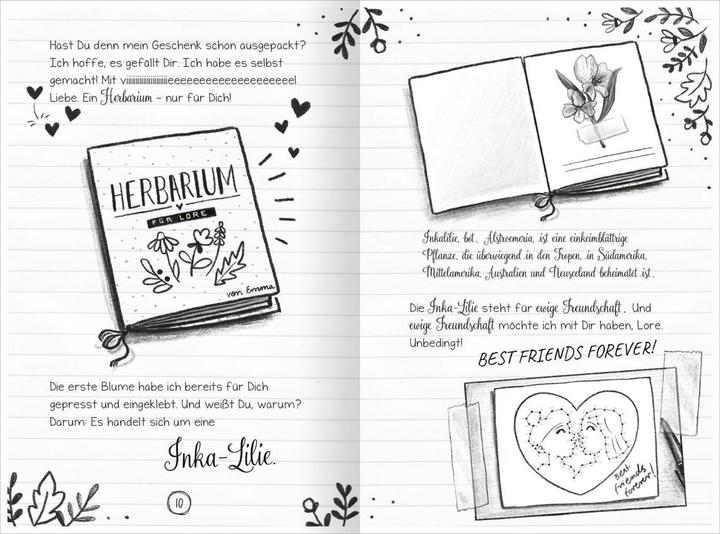 Hast Du denn mein Geschenk schon ausgepackt?
Ich hoffe, es gefällt Dir. Ich habe es selbst
gemacht! Mit viiiiiiiiiiiiiiiiiieeeeeeeeeeeeeeeeeeeeel
Liebe. Ein Herbarium – nur für Dich!
HERBARIUM
FÜR LORE
von Emma
Die erste Blume habe ich bereits für Dich
gepresst und eingeklebt. Und weißt Du, warum?
Darum: Es handelt sich um eine
Inka-Lilie.
10
Inkalilie, bot. Alstroemeria, ist eine einkeimblättrige
Pflanze, die überwiegend in den Tropen, in Südamerika,
Mittelamerika, Australien und Neuseeland beheimatet ist.
Die Inka-Lilie steht für ewige Freundschaft. Und
ewige Freundschaft möchte ich mit Dir haben, Lore.
Unbedingt!
BEST FRIENDS FOREVER!
Best
friends
forever!